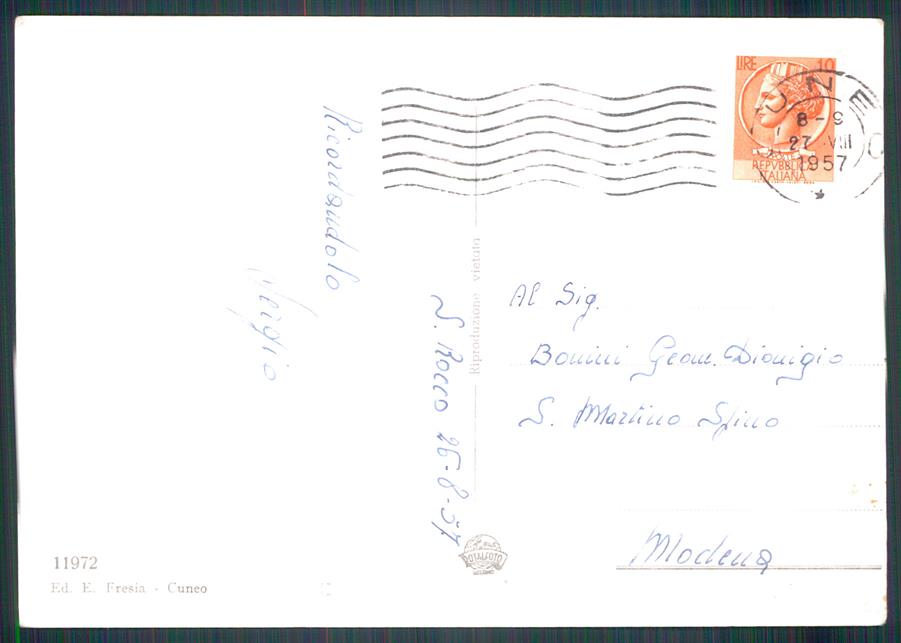 Ricordandolo
Sergio
S. Rocco 26-8-57
Riproduzione vietata
LIRE 10
REPVBBLICA
ITALIANA
CUNEO
8-9
27 VIII
1957
Al Sig.
Bonini Geom. Dionigio
S. Martino Spino
Modena
ROTALFOTO
11972
Ed. E. Fresia - Cuneo